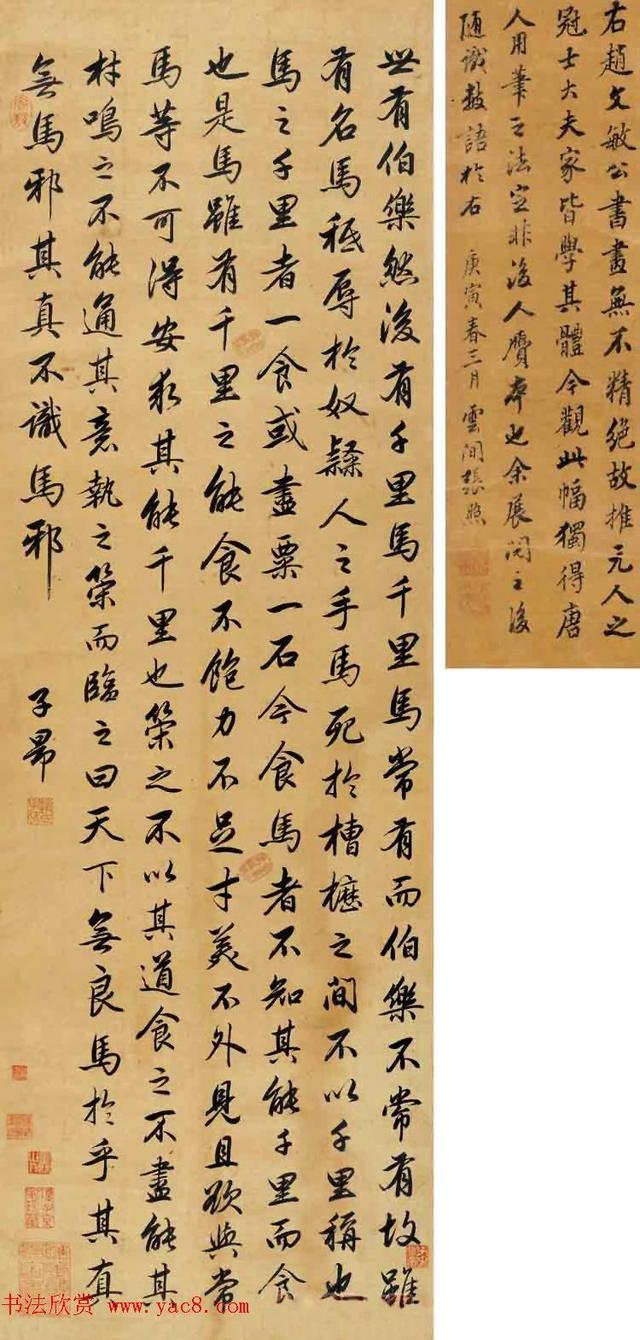 右趙文敏公書畫無不精絕故推元人之
冠士大夫家皆學其體今觀此幅獨得唐
人用筆之法定非後人贗本也余展閱之後
隨識數語於右 庚寅春三月 雲間張照
世有伯樂然後有千里馬千里馬常有而伯樂不常有故雖
有名馬秪辱於奴隸人之手馬死於槽櫪之間不以千里稱也
馬之千里者一食或盡粟一石今食馬者不知其能千里而食
也是馬雖有千里之能食不飽力不足才美不外見且欲與常
馬等不可得安求其能千里也策之不以其道食之不盡能其
材鳴之不能通其意執之策而臨之曰天下無良馬於乎其真
無馬邪其真不識馬邪 子昂
书法欣赏 www.yac8.com